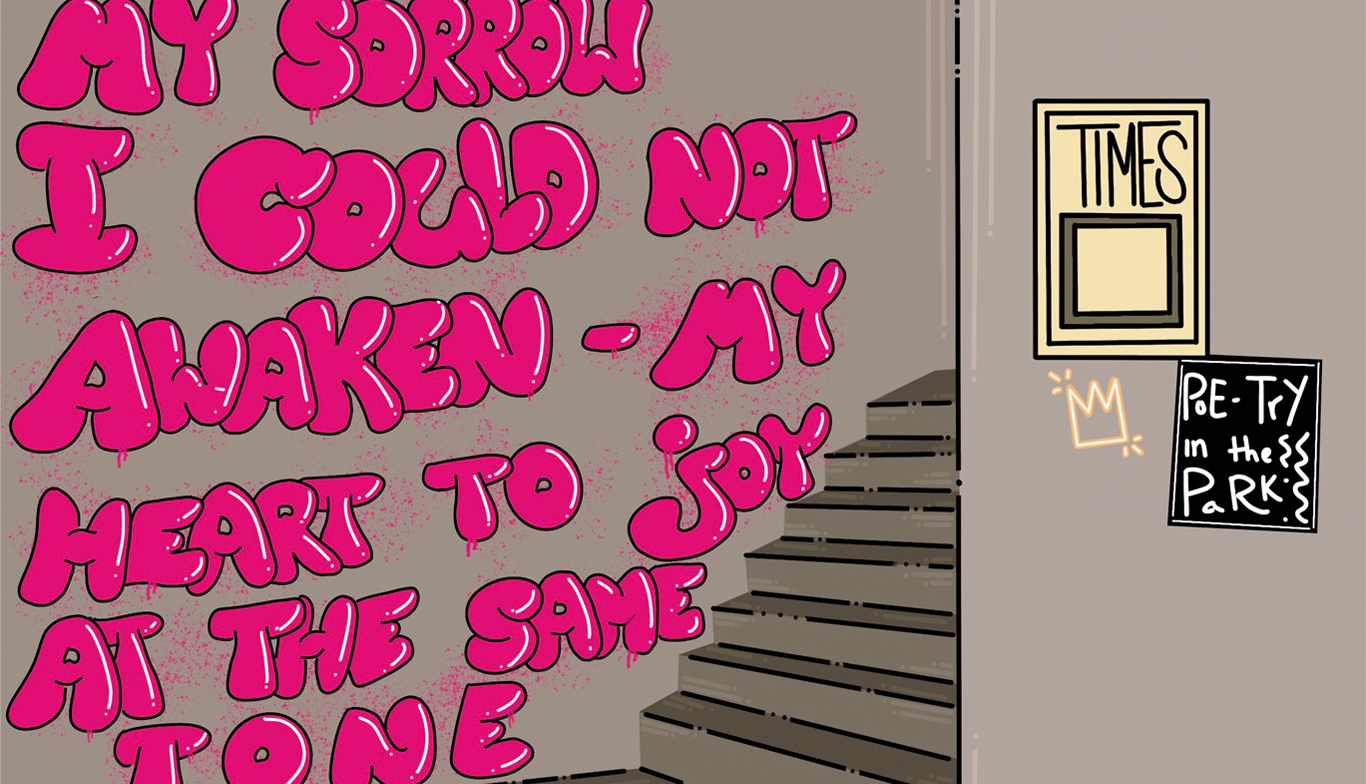 MY SORROW
I COULD NOT
AWAKEN - MY
HEART TO JOY
AT THE SAME
TONE
TIMES
POE-TrY
in the
PaRK